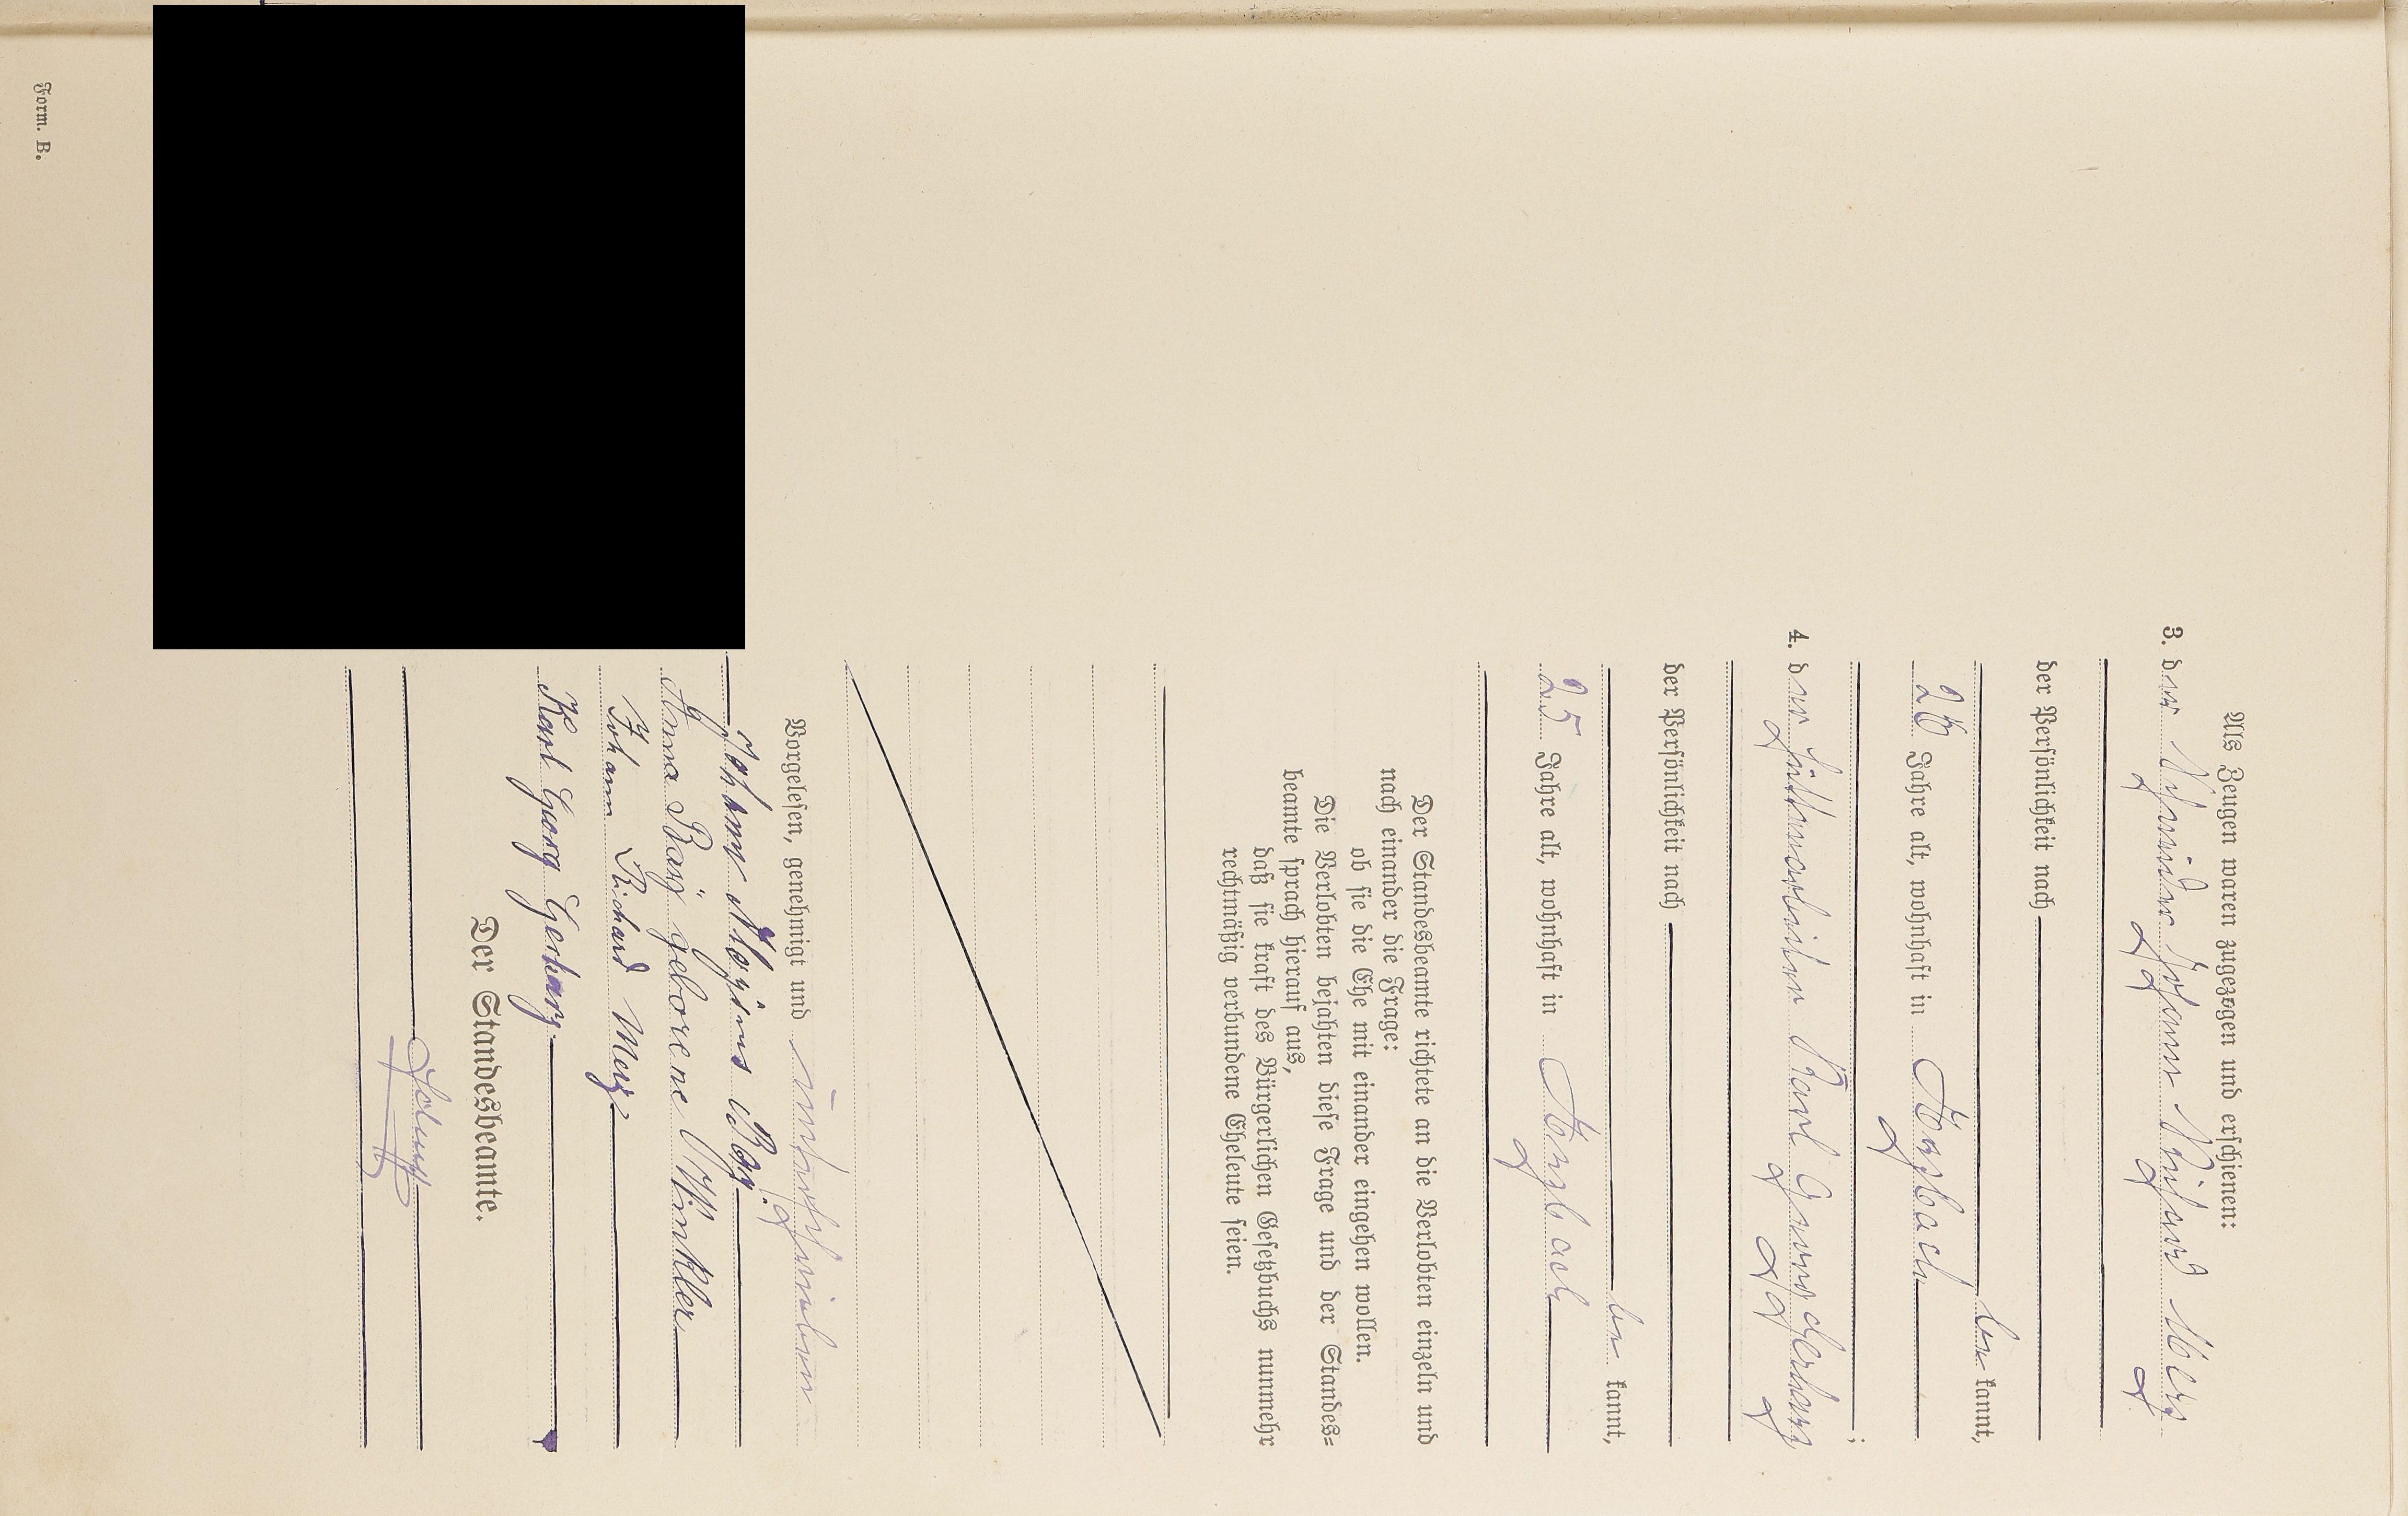 Als Zeugen waren zugezogen und erschienen:
3. der Schneider Johann Richard Merz
der Persönlichkeit nach
be kannt,
26 Jahre alt, wohnhaft in Mörzbach
;
4. der Hüttenarbeiter Karl Georg Gerharz
der Persönlichkeit nach
be kannt,
25 Jahre alt, wohnhaft in
Der Standesbeamte richtete an die Verlobten einzeln und
nach einander die Frage:
ob sie die Ehe mit einander eingehen wollen.
Die Verlobten bejahten diese Frage und der Standes=
beamte sprach hierauf aus,
daß sie kraft des Bürgerlichen Gesetzbuchs nunmehr
rechtmäßig verbundene Eheleute seien.
Vorgelesen, genehmigt und unterschrieben
Johann Aloysius Bay.
Anna Bay geborene Winkler
Johann Richard Merz
Karl Georg Gerharz
Der Standesbeamte.
Form. B.